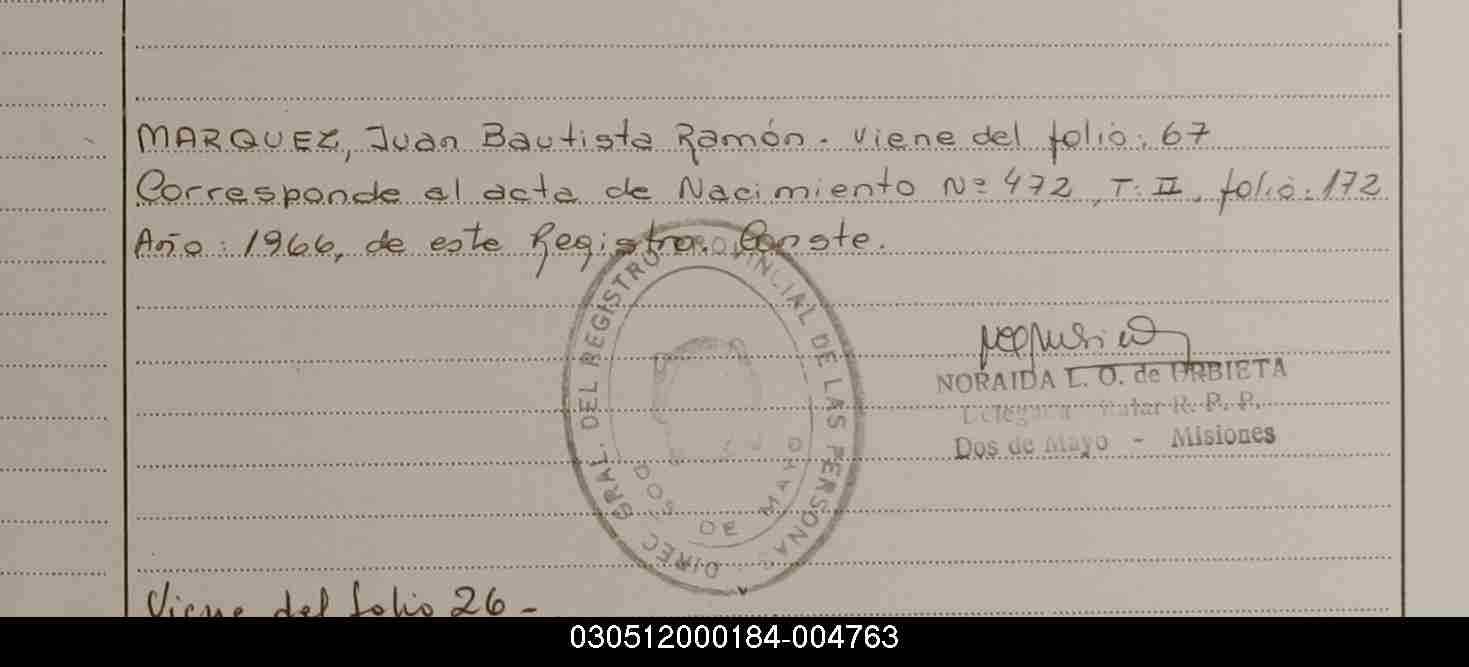 MARQUEZ, Juan Bautista Ramón. Viene del folio: 67
Corresponde al acta de Nacimiento Nº 472, T: II, folio: 172
Año: 1966, de este Registro. Conste.
DIREC. GRAL. DEL REGISTRO PROVINCIAL DE LAS PERSONAS
DOS DE MAYO
NORAIDA L. O. de URBIETA
R. P. P.
Dos de Mayo - Misiones
Viene del folio 26 -
030512000184-004763